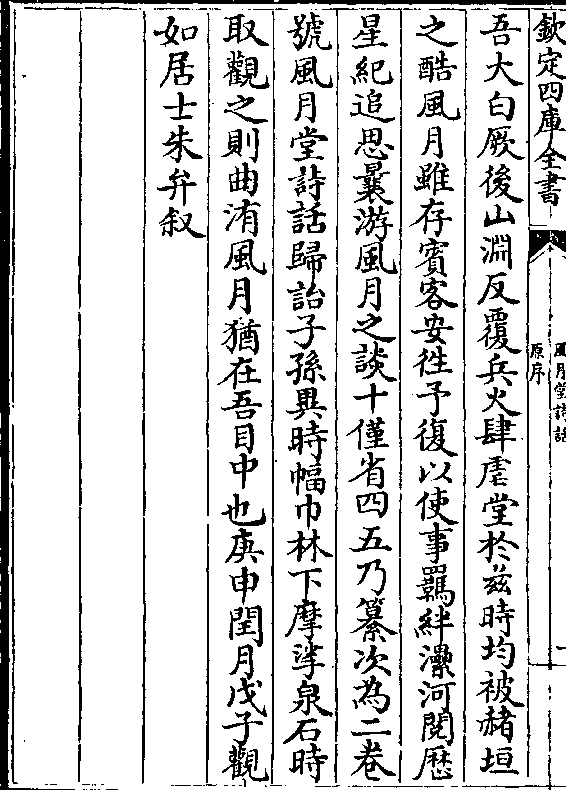 欽定四庫全書
風月堂詩話
原序
一
吾大白厥後山淵反覆兵火肆虐堂於兹時均被赭垣
之酷風月雖存賓客安徃予復以使事羈絆灅河閱歴
星紀追思曩游風月之談十僅省四五乃纂次為二卷
號風月堂詩話歸詒子孫異時幅巾林下摩挲泉石時
取觀之則曲洧風月猶在吾目中也庚申閏月戊子觀
如居士朱弁叙